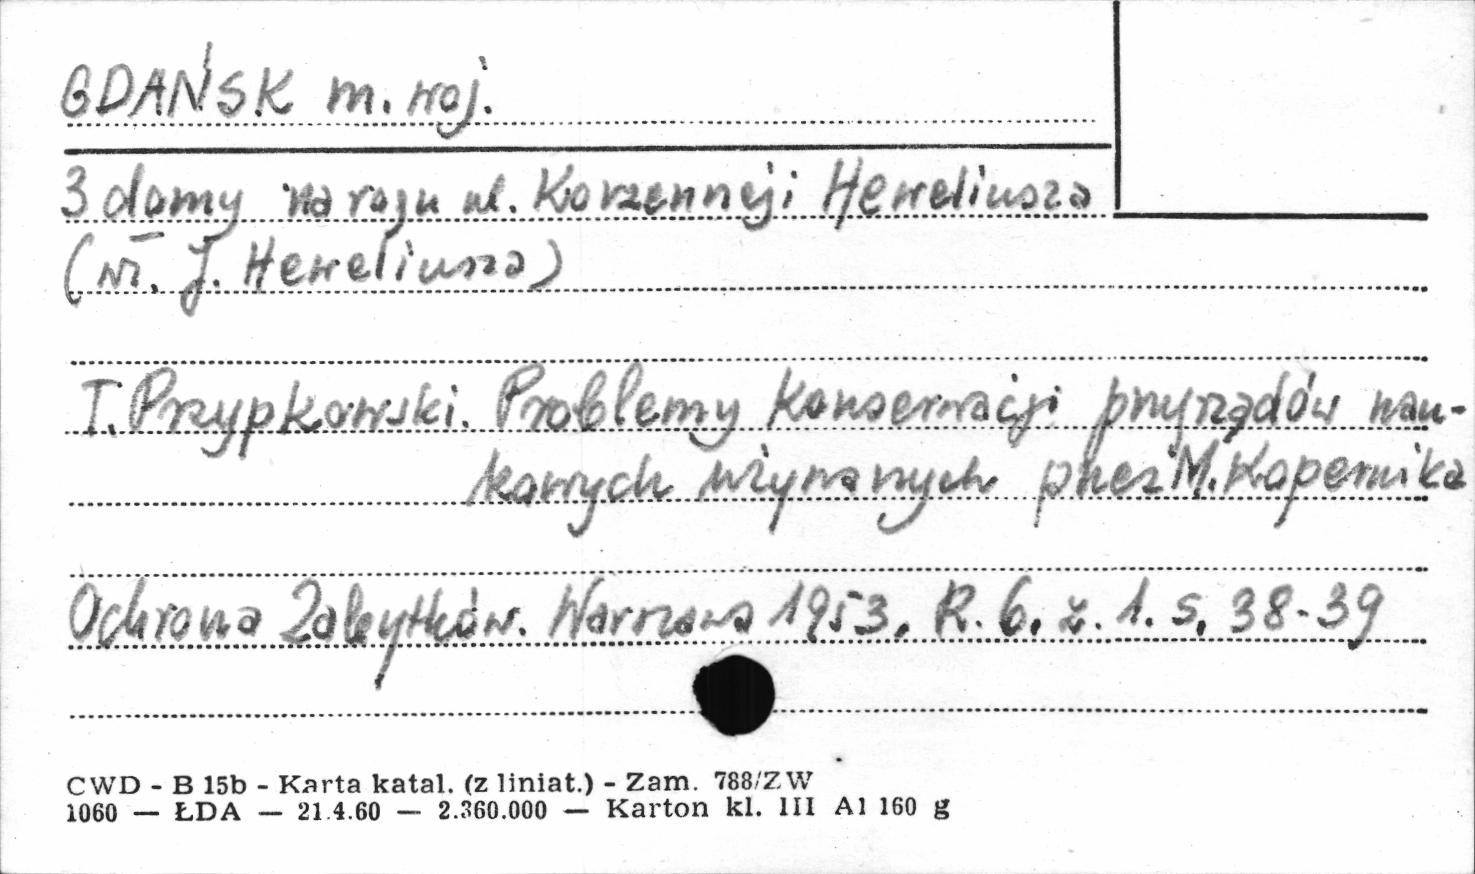 GDAŃSK m. woj.
3 domy na rogu ul. Korzennej i Heweliusza
(wł. J. Heweliusza)
T. Przypkowski. Problemy konserwacji przyrządów nau-
kowych używanych przez M. Kopernika
Ochrona Zabytków. Warszawa 1953. R. 6. z. 1. s. 38-39
CWD - B 15b - Karta katal. (z liniat.) - Zam. 788/ZW
1060 — ŁDA — 21.4.60 — 2.360.000 — Karton kl. III A1 160 g